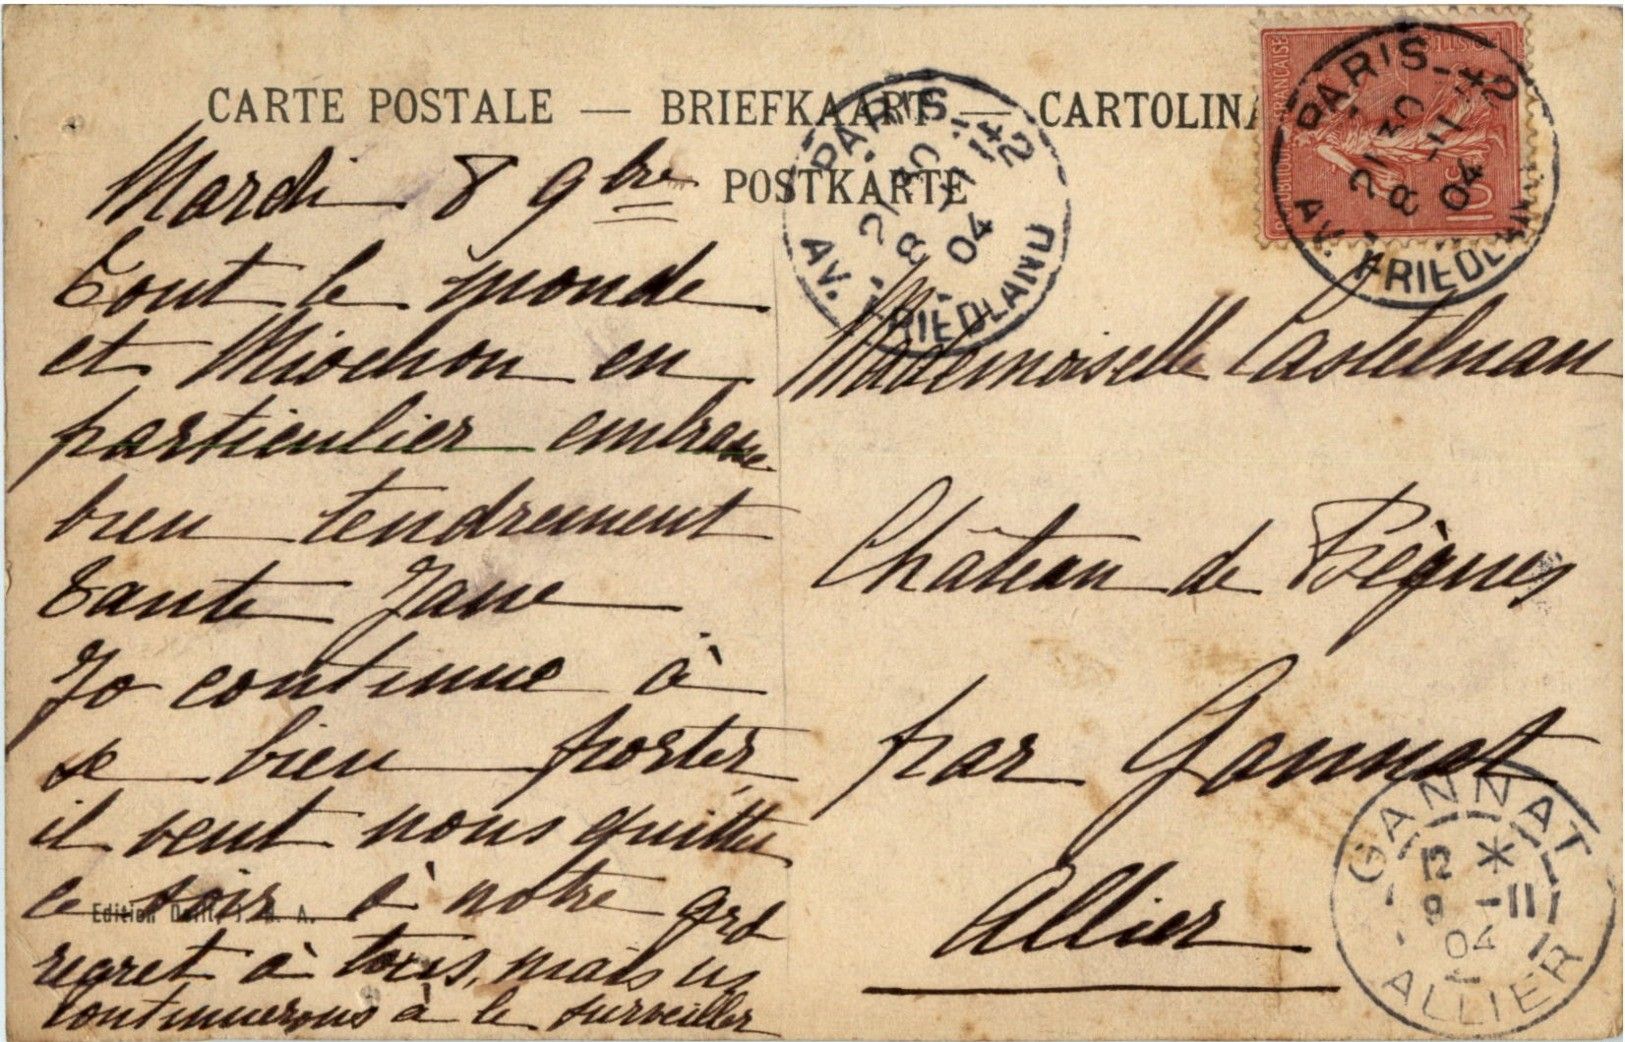 CARTE POSTALE — BRIEFKAART — CARTOLINA
POSTKARTE
PARIS - 42
21 30
8 - 11
04
AV. FRIEDLAND
PARIS - 42
21 30
8 - 11
04
AV. FRIEDLAND
FRANÇAISE
POSTES
10c
Mardi 8 9bre
Tout le monde
et Miochon en
particulier embrasse
bien tendrement
Tante Jane
Jo continue à
se bien porter,
il veut nous quitter
ce soir à notre grd
regret à tous, mais ns
continuerons à le surveiller
Mademoiselle Castelnau
Château de Bègues
par Gannat
Allier
Edition J. A.
GANNAT
12 *
9 - 11
04
ALLIER